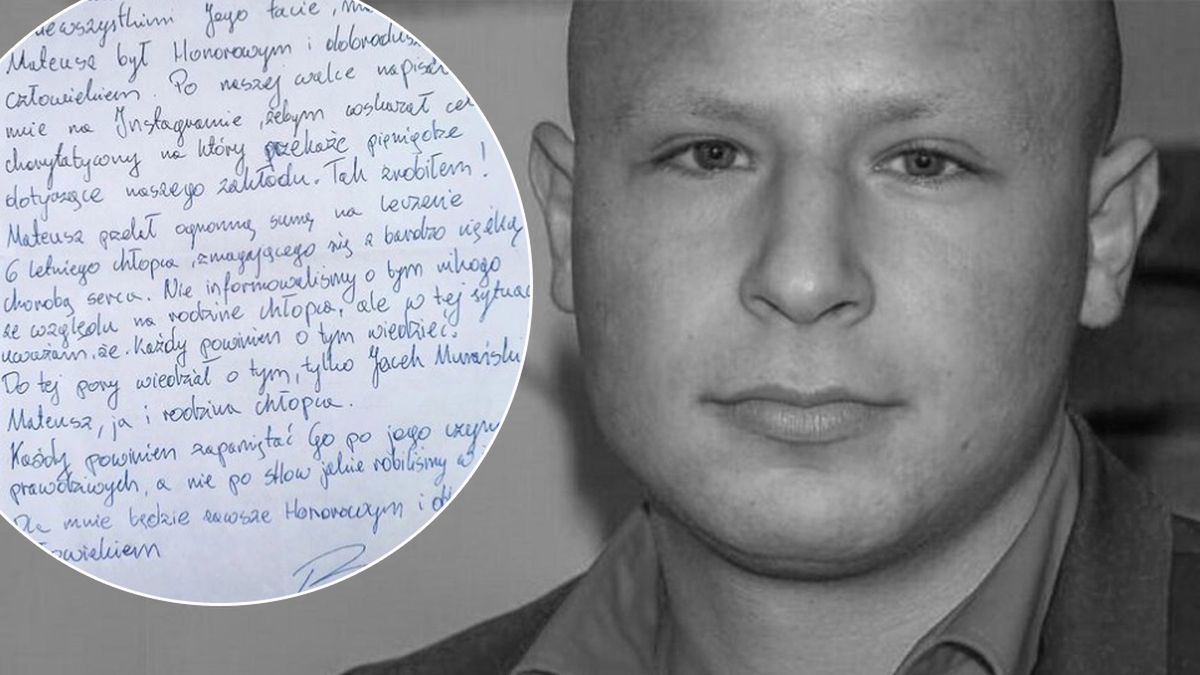 wszystkim Jego tacie,
Mateusz był Honorowym i dobrodusz
człowiekiem. Po naszej walce napisał
mnie na Instagramie, żebym wskazał cel
charytatywny na który przekaże pieniądze
dotyczące naszego zakładu. Tak zrobiłem!
Mateusz przelał ogromną sumę na leczenie
6 letniego chłopca, zmagającego się z bardzo ciężką
chorobą serca. Nie informowaliśmy o tym nikogo
ze względu na rodzinę chłopca, ale w tej sytuac
uważam, że. Każdy powinien o tym wiedzieć.
Do tej pory wiedział o tym, tylko Jacek Murański
Mateusz, ja i rodzina chłopca.
Każdy powinien zapamiętać Go po jego czyn
prawdziwych, a nie po słow jakie robiliśmy w
Dla mnie będzie zawsze Honorowym i d
owiekiem